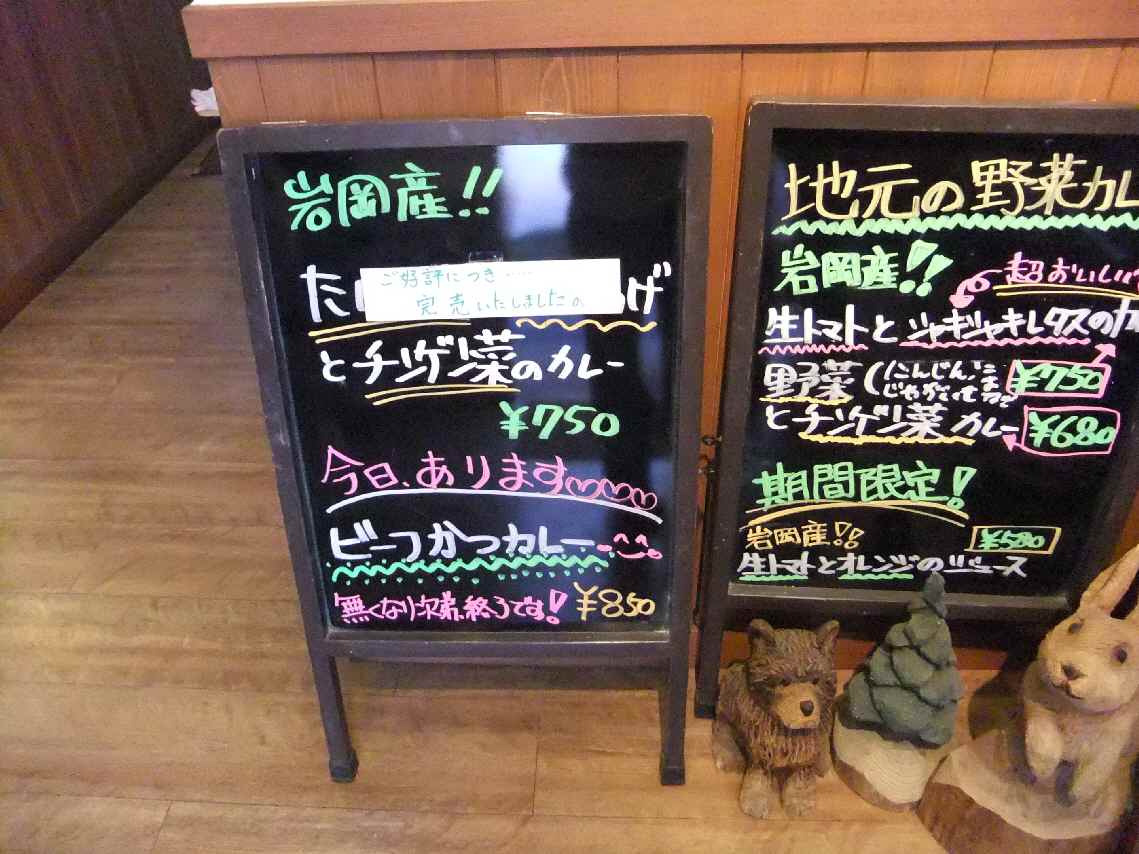 岩岡産!!
ご好評につき……
完売いたしました。
た げ
とチンゲン菜のカレー
¥750
今日、あります
ビーフかつカレー
無くなり次第、終了です! ¥850
地元の野菜カレ
岩岡産!!
超おいしい
生トマトとシャキシャキレタスのカ
野菜(にんじん じゃが
¥750
とチンゲン菜カレー
¥680
期間限定!
岩岡産!! ¥580
生トマトとオレンジのジュース